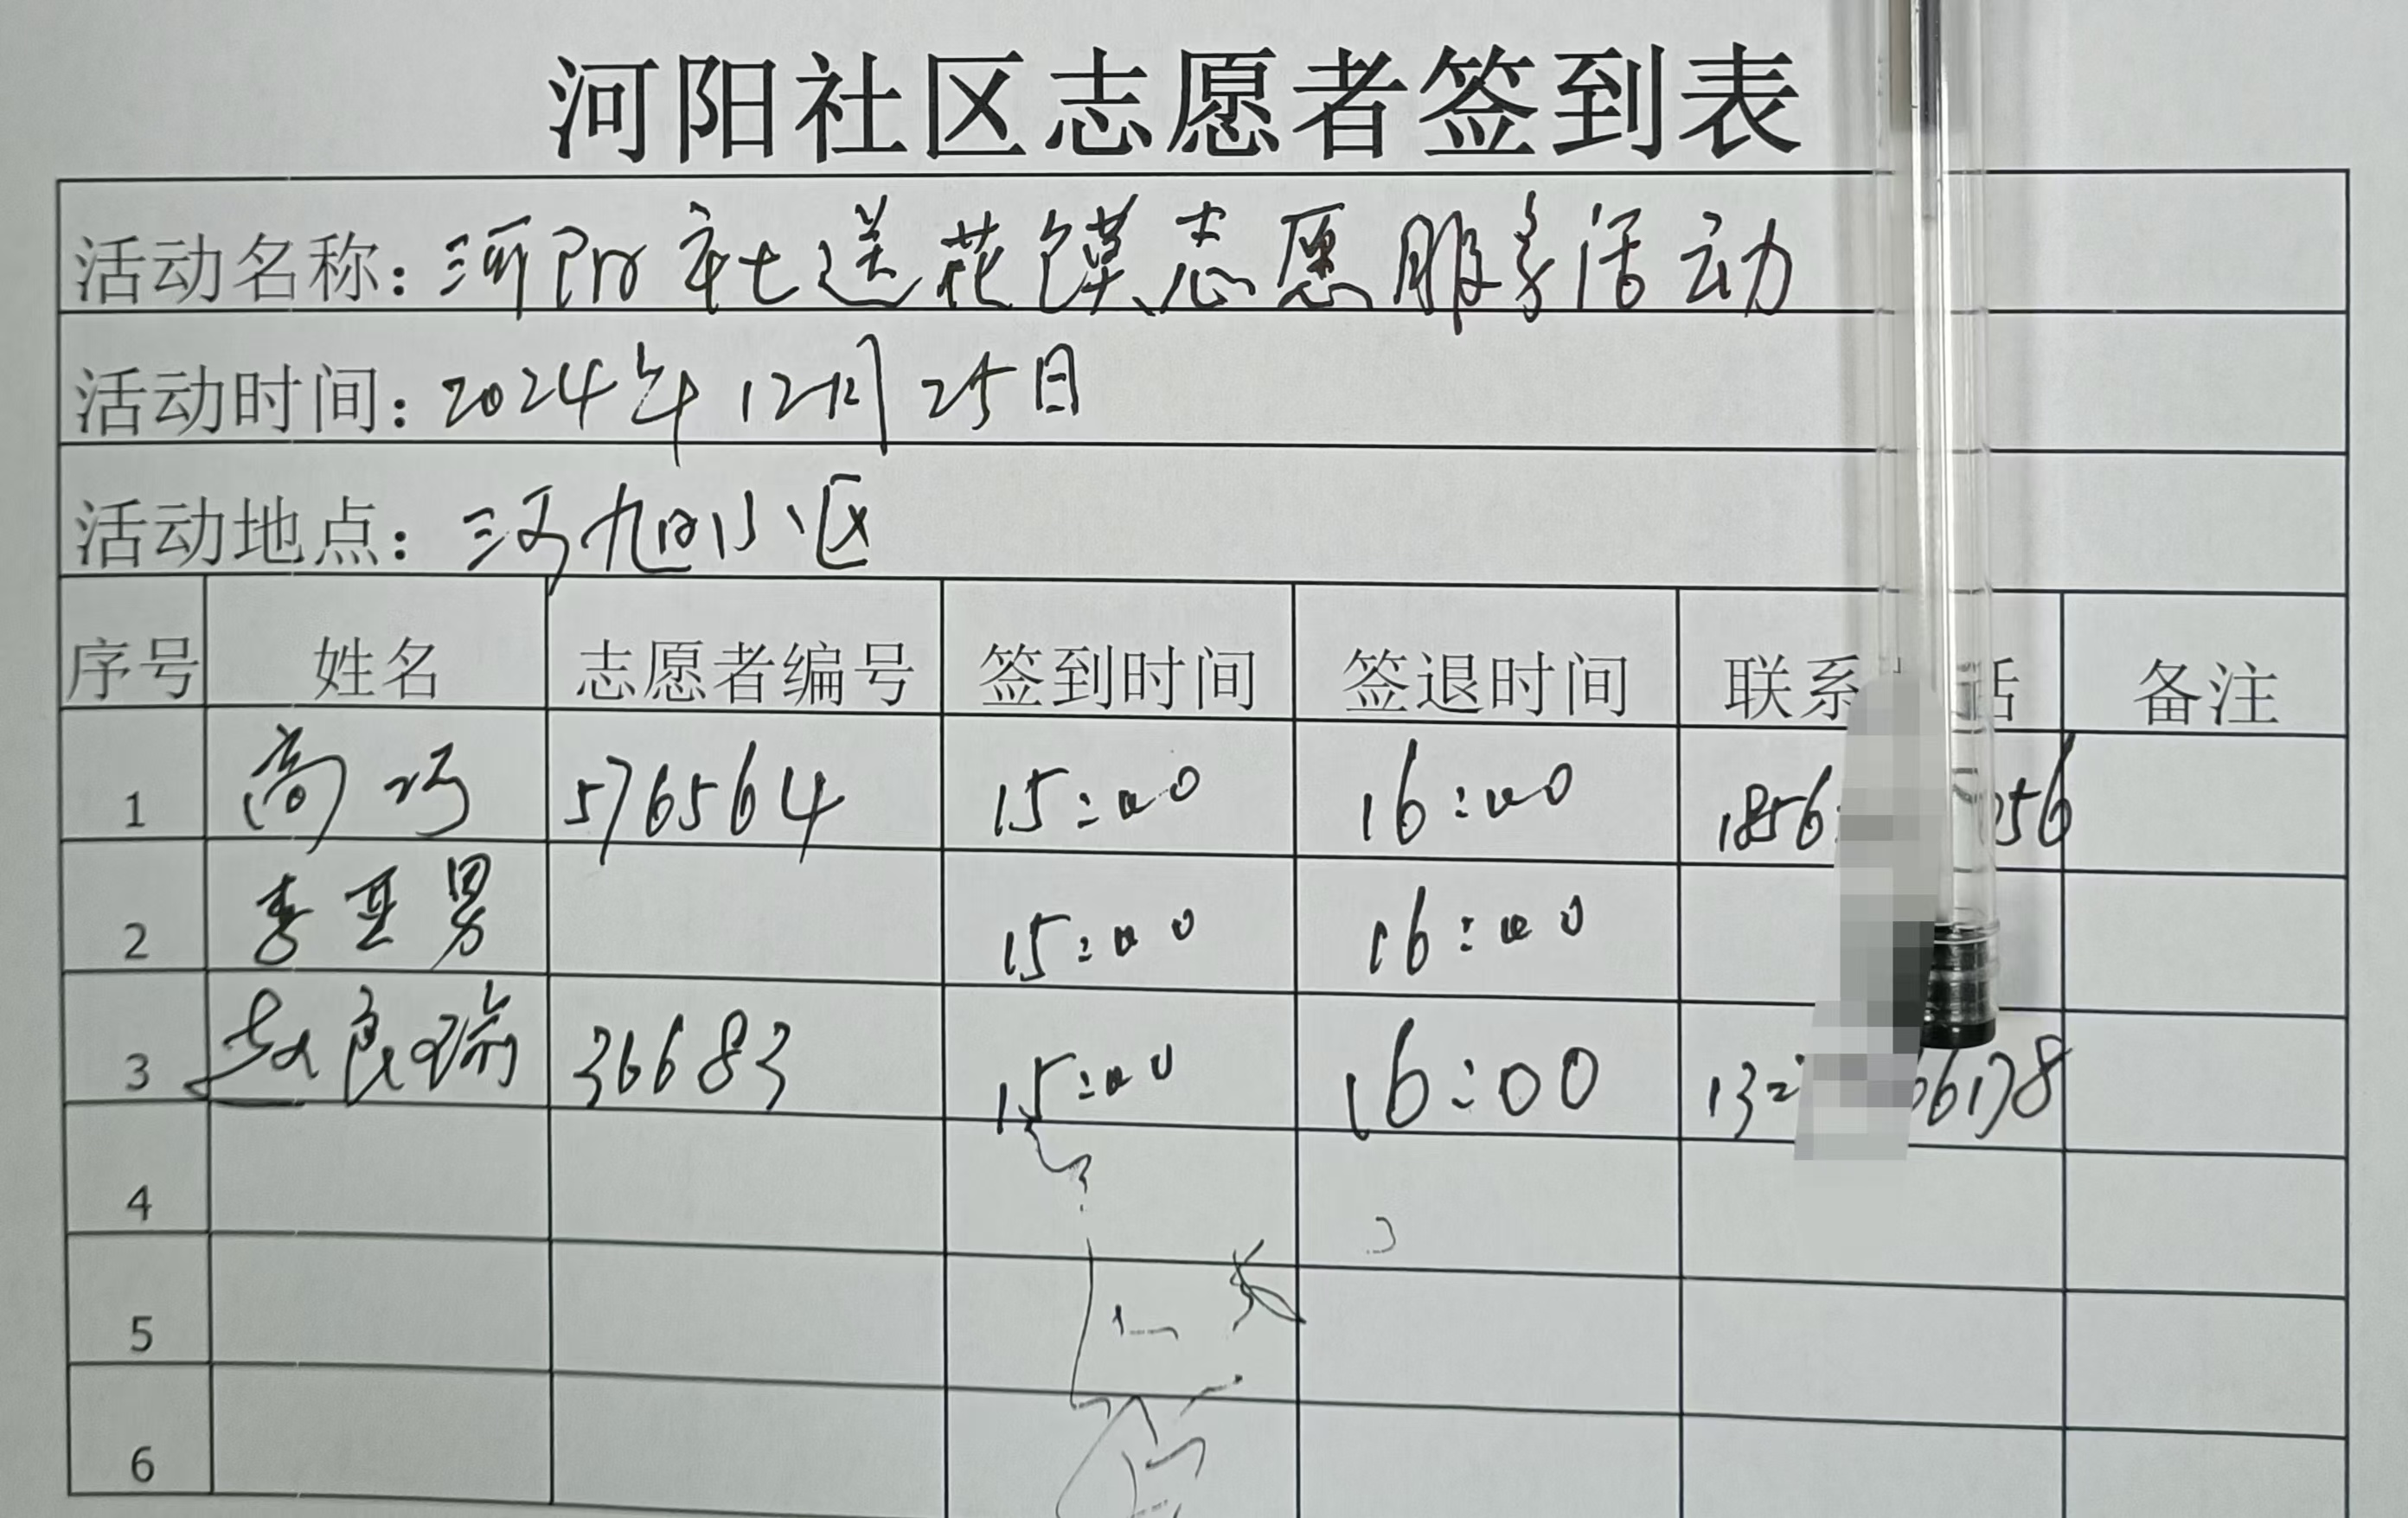 河阳社区志愿者签到表
活动名称：河阳社送花馍志愿服务活动
活动时间：2024年12月25日
活动地点：河旭小区
序号 姓名 志愿者编号 签到时间 签退时间 联系 话 备注
1 高巧 576564 15:00 16:00 1856 056
2 李亚男 15:00 16:00
3 赵良瑜 36683 15:00 16:00 132 66178
4
5
6